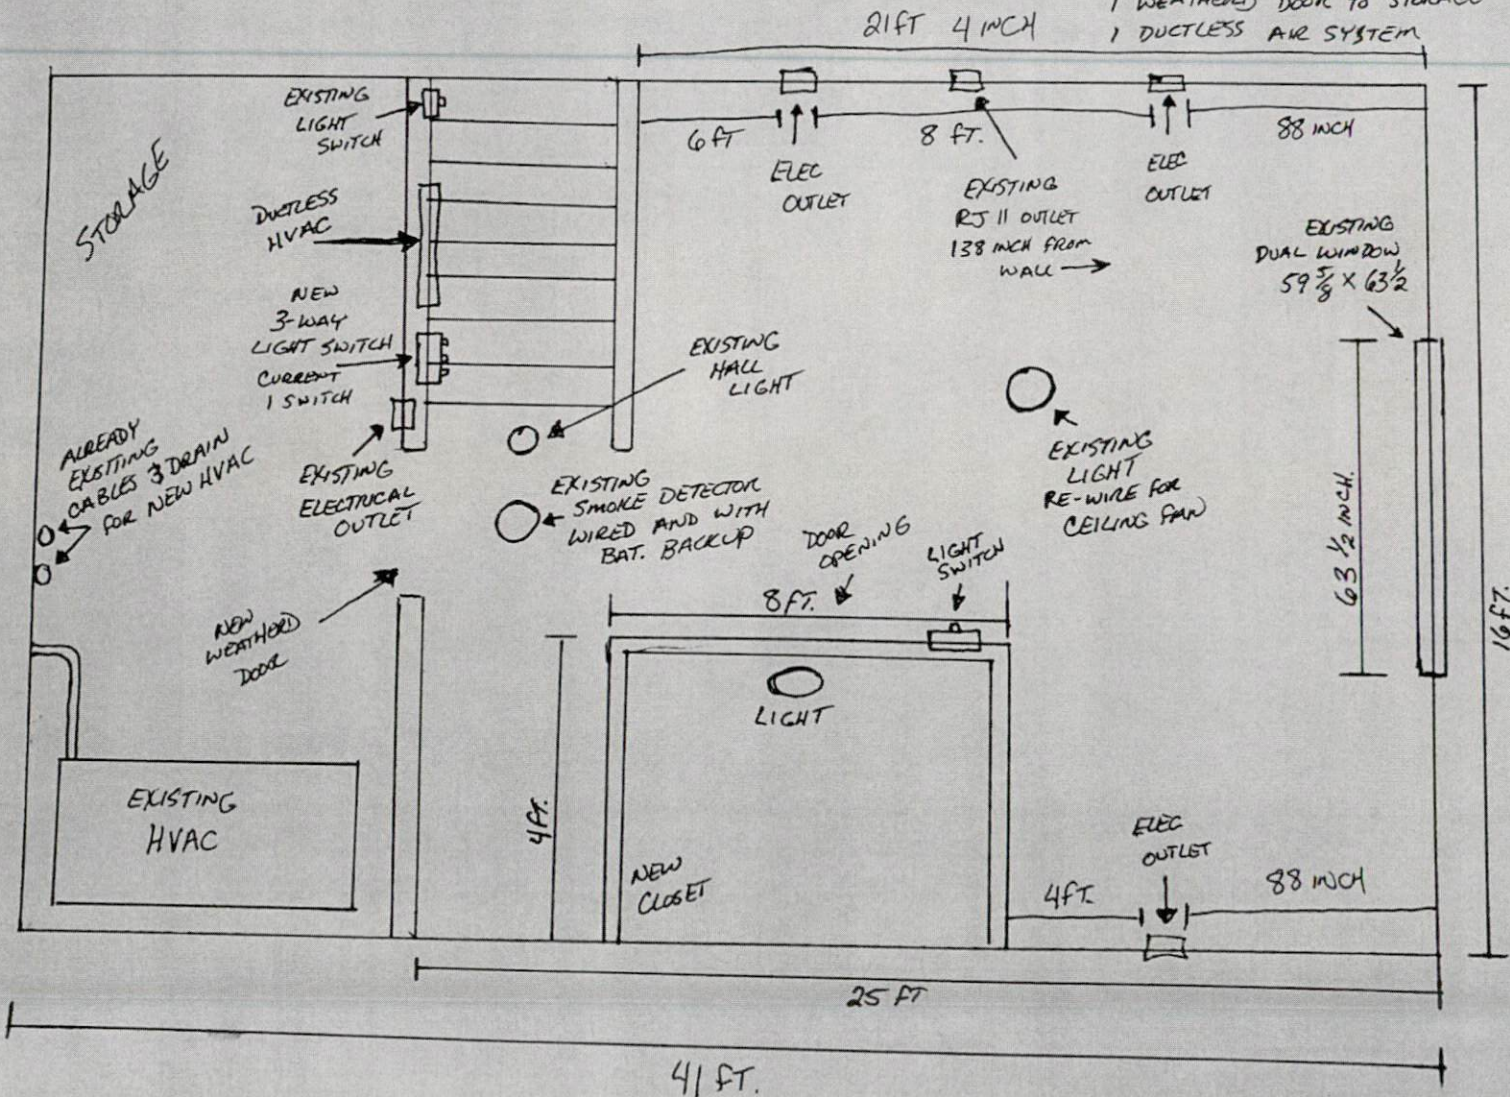 1 WEATHERD DOOR TO STORAGE
21FT 4 INCH
1 DUCTLESS AIR SYSTEM
EXISTING
LIGHT
SWITCH
STORAGE
DUCTLESS
HVAC
NEW
3-WAY
LIGHT SWITCH
CURRENT
1 SWITCH
ALREADY
EXSITING
CABLES & DRAIN
FOR NEW HVAC
EXISTING
ELECTRICAL
OUTLET
NEW
WEATHERD
DOOR
EXISTING
HVAC
6 FT
ELEC
OUTLET
8 FT.
EXISTING
RJ 11 OUTLET
138 INCH FROM
WALL
ELEC
OUTLET
88 INCH
EXISTING
DUAL WINDOW
59 5/8 X 63 1/2
EXISTING
HALL
LIGHT
EXISTING
SMOKE DETECTOR
WIRED AND WITH
BAT. BACKUP
EXISTING
LIGHT
RE-WIRE FOR
CEILING FAN
63 1/2 INCH.
16 FT.
DOOR
OPENING
LIGHT
SWITCH
8 FT.
LIGHT
4 FT.
NEW
CLOSET
ELEC
OUTLET
4 FT.
88 INCH
25 FT
41 FT.